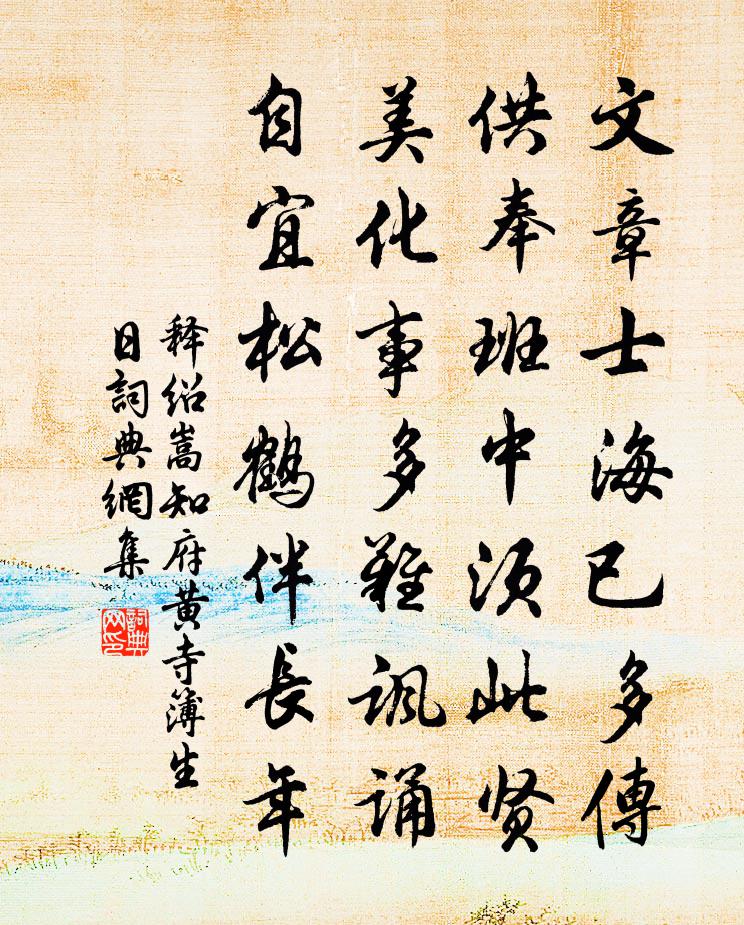 文章士海已多傳
供奉班中須此贤
美化事多難諷誦
自宜松鶴伴長年
释绍嵩知府黄寺簿生
日詞典網集
詞典
网印